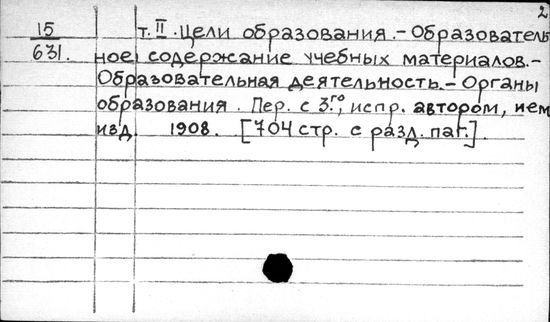 2
15
631.
т. II. Цели образования.-Образователь
ное содержание учебных материалов.-
Образовательная деятельность.-Органы
образования. Пер. с 3го, испр. автором, нем
изд. 1908. [704 стр. с разд. паг.].